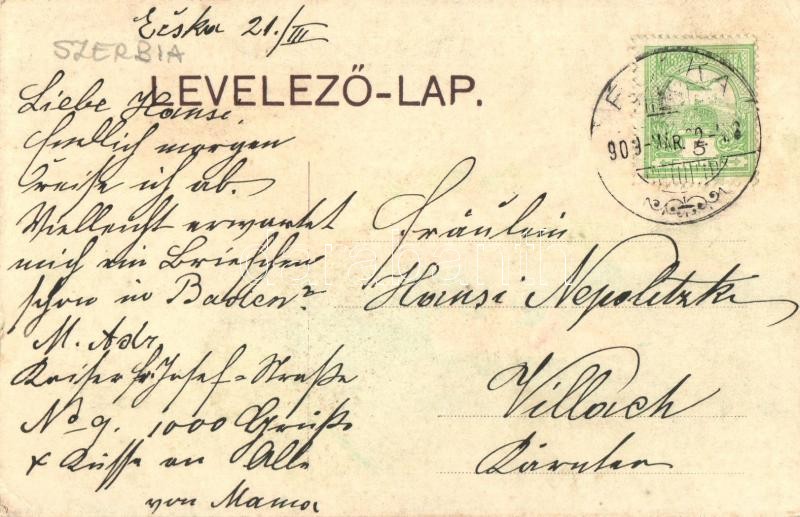 Ečska 21./III
SZERBIA
LEVELEZŐ-LAP.
Liebe Hansi
Endlich morgen
reise ich ab.
Vielleicht erwartet
mich ein Briefchen
schon in Baden?
M. Adr.
Kaiser Fr. Josef-Straße
No 9. 1000 Grüße
& Küsse an Alle
von Mama
Fräulein
Hansi Nepolitzki
Villach
Kärnten
909 MÁR.
5